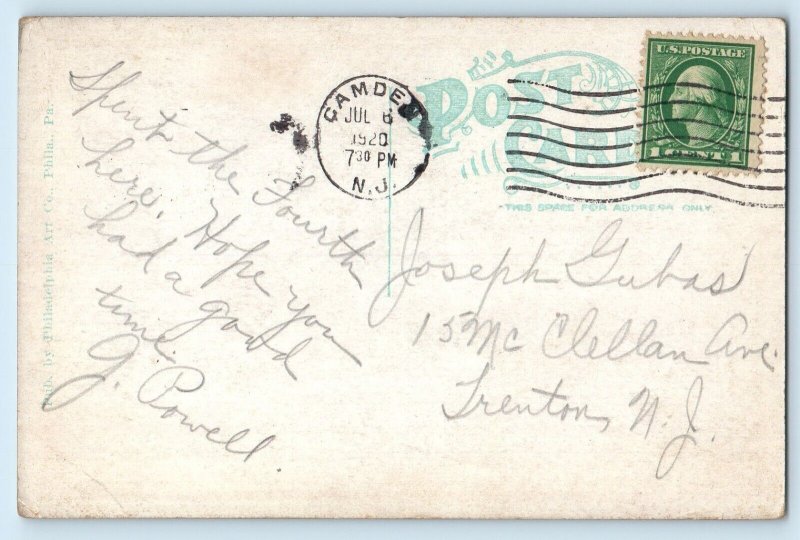 Spent the Fourth
here. Hope you
had a good
time.
G. Powell.
Pub. by Philadelphia Art Co. Phila. Pa.
CAMDEN
JUL 6
1920
7 30 PM
N.J.
POST
CARD
THIS SPACE FOR ADDRESS ONLY
U.S. POSTAGE
1 CENT 1
Joseph Gubas
15 Mc Clellan Ave.
Trenton, N. J.